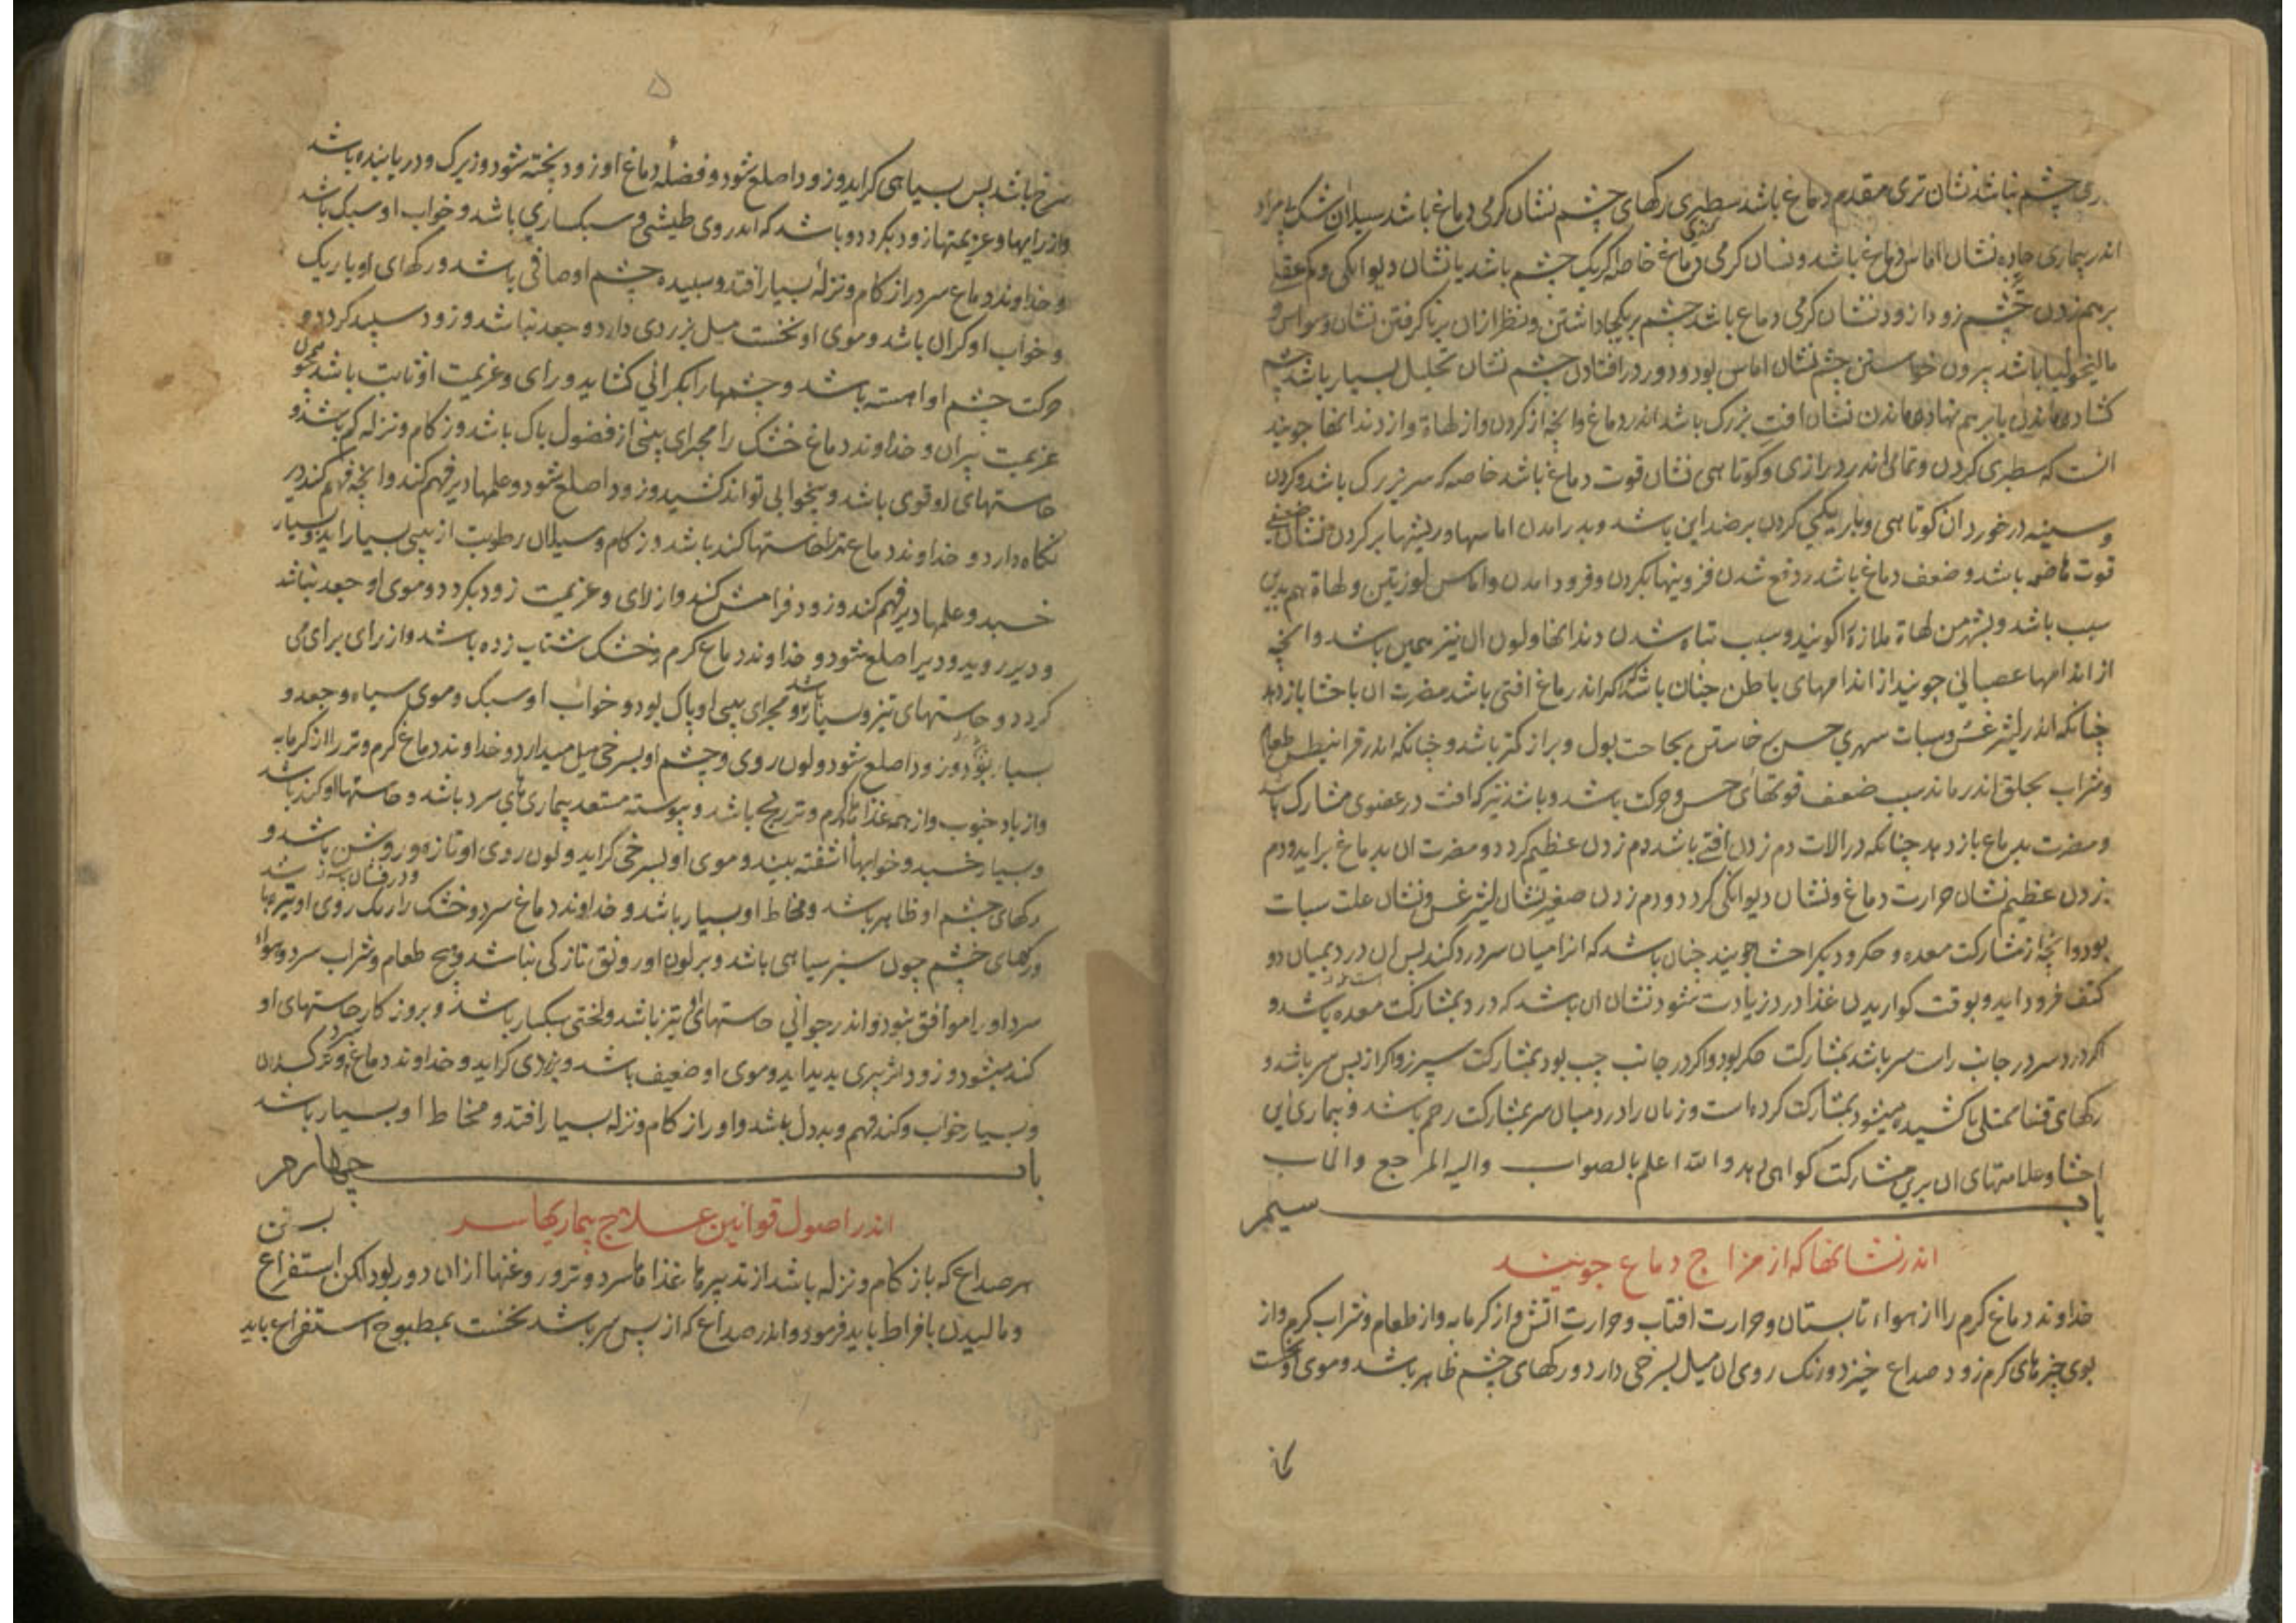 ری چشم نباشد نشان تری مقدم دماغ باشد سطبری رکهای چشم نشان کرمی دماغ باشد سیلان اشک بی مراد
اندر بیماری حاده نشان اماس دماغ باشد و نشان کرمی دماغ خاصه کز یک چشم باشد یا نشان دیوانکی و کم عقلی
برهم زدن چشم زود ازود نشان کرمی دماغ باشد چشم بر یکجا داشتن و نظر ازان بر نا کرفتن نشان وسواس و
مالیخولیا باشد بیرون خواستن چشم نشان اماس بود و دور در افتادن چشم نشان تحلیل بسیار باشد چشم
کشاده ماندن یا برهم نهاده ماندن نشان افت بزرک باشد اندر دماغ و انچه از کردن و از لهاة و از دندانها جویند
انست که سطبری کردن و تمامی اندر درازی و کوتاهی نشان قوت دماغ باشد خاصه که سر بزرک باشد و کردن
و سینه در خورد ان کوتاهی و باریکی کردن بر ضد این باشد و بدر امدن اماسها و ریشها بر کردن نشان ضعفی
قوت هاضمه باشد و ضعف دماغ باشد و دفع شدن فزونیها بکردن و فرود امدن و اماس لوزتین و لهاة هم بدین
سبب باشد و بشهر من لهاة ملازه را کویند و سبب تباه شدن دندانها و لون ان نیز همین باشد و انچه
از اندامها عصبانی جویند از اندامهای باطن چنان باشد که اکر اندر دماغ افتی باشد مضرت ان باحشا باز دهد
چنانکه اندر لیثرغس و سبات سهری حس برخاستن بحاجت بول و براز کمتر باشد و چنانکه اندر قرانیطس طعام
و شراب بحلق اندر ماند سبب ضعف قوتهای حس و حرکت باشد و باشد نیز که افت در عضوی مشارک باشد
و مضرت بدماغ باز دهد چنانکه در الات دم زدن افتی باشد دم زدن عظیم کردد و مضرت ان بدماغ براید و دم
زدن عظیم نشان حرارت دماغ و نشان دیوانکی کردد و دم زدن صغیر نشان لیثرغس و نشان علت سبات
بود و انچه از مشارکت معده و جکر و دیکر احشا جویند چنان باشد که از میان سر درد کند پس ان درد بمیان دو
کتف فرود اید و بوقت کواریدن غذا درد زیادت شود نشان ان باشد که درد بمشارکت معده باشد و
اکر درد سر در جانب راست سر باشد بمشارکت جکر بود و اکر در جانب چپ بود بمشارکت سپرز و اکر از پس سر باشد و
رکهای قفا ممتلی یا کشیده میشود بمشارکت کرده است و زنان را درد میان سر بمشارکت رحم باشد و بیماری این
احشا و علامتهای ان برین مشارکت کواهی دهد والله اعلم بالصواب والیه المرجع والماب
باب سیم
اندر نشانها که از مزاج دماغ جویند
خداوند دماغ کرم را از هواء تابستان و حرارت افتاب و حرارت اتش و از کرمابه و از طعام و شراب کرم و از
بوی چیزهای کرم زود صداع خیزد و رنک روی ان میل بسرخی دارد و رکهای چشم ظاهر باشد و موی او نخست
۵
سرخ باشد پس بسیاهی کراید و زود اصلع شود و فضله دماغ او زود پخته شود و زیرک و دریابنده باشد
و از رایها و عزیمتها زود بکردد و باشد که اندر وی طیشی و سبکساری باشد و خواب او سبک باشد
و خداوند دماغ سرد را زکام و نزله بسیار افتد و سبیده چشم او صافی باشد و رکهای او باریک
و خواب او کران باشد و موی او نخست میل بزردی دارد و جعد نباشد و زود سپید کردد و
حرکت چشم او اهسته باشد و چشمها را بکرانی کشاید و رای و عزیمت او ثابت باشد همچون
عزیمت پیران و خداوند دماغ خشک را مجرای بینی از فضول پاک باشد و زکام و نزله کم باشد و
حاستهای او قوی باشد و بیخوابی تواند کشید و زود اصلع شود و علمها دیر فهم کند و انچه فهم کند دیر
نکاه دارد و خداوند دماغ تر را حاستها کند باشد و زکام و سیلان رطوبت از بینی بسیار اید و بسیار
خسبد و علمها دیر فهم کند و زود فرامش کند و از رای و عزیمت زود بکردد و موی او جعد نباشد
و دیر روید و دیر اصلع شود و خداوند دماغ کرم و خشک شتاب زده باشد و از رای برای می
کردد و حاستهای تیز و سبکبار باشد و مجرای بینی او پاک بود و خواب او سبک و موی سیاه و جعد و
بسیار بود و زود اصلع شود و لون روی و چشم او بسرخی میل میدارد و خداوند دماغ کرم و تر را از کرمابه
و از باد جنوب و از همه غذاها کرم و تر رنج باشد و پیوسته مستعد بیماری های سرد باشد و حاستها او کند باشد
و بسیار خسبد و خوابها اشفته بیند و موی او بسرخی کراید و لون روی او تازه و روشن باشد و
رکهای چشم او ظاهر باشد و مخاط او بسیار باشد و خداوند دماغ سرد و خشک را رنک روی او تیره باشد
و رکهای چشم چون سبز سیاهی باشد و بر لون او رونق تازکی نباشد و هیچ طعام و شراب سرد و هواء
سرد او را موافق نبود و اندر جوانی حاستهای او تیز باشد و لختی سبکسار باشد و بروزکار حاستهای او
کند میشود و زود اثر پیری پدید اید و موی او ضعیف باشد و بزردی کراید و خداوند دماغ سرد و تر کسلان
و بسیار خواب و کند فهم و بد دل باشد و او را زکام و نزله بسیار افتد و مخاط او بسیار باشد
باب چهارم
اندر اصول قوانین علاج بیماریها سر
هر صداع که با زکام و نزله باشد از تدبیرها غذاها سرد و تر و روغنها ازان دور بود لکن استفراغ
و مالیدن بافراط باید فرمود و اندر صداع که از پس سر باشد نخست بمطبوخ استفراغ باید